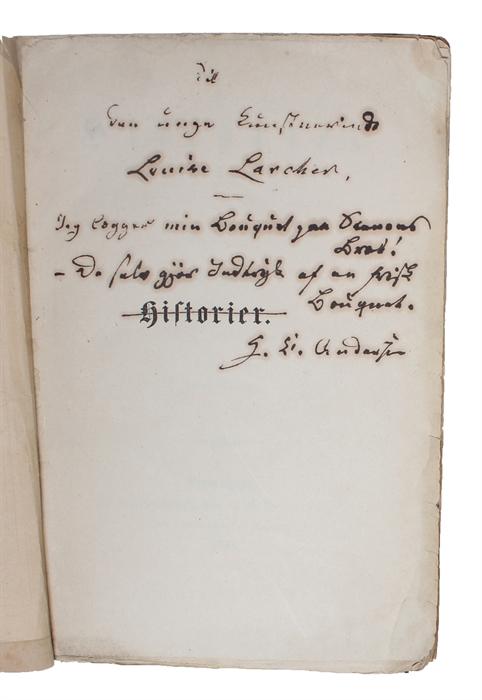 Til
den unge Kunstnerinde
Louise Larcher,
Jeg lægger min Bouquet paa Scenens
Bræt!
– De selv gjør Indtryk af en frisk
Bouquet.
Historier.
H. C. Andersen